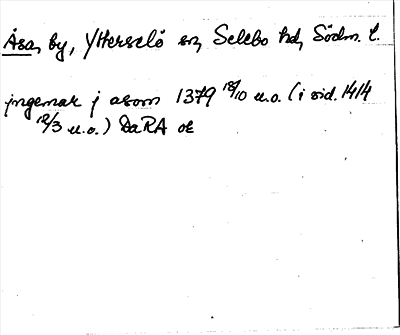 Åsa, by, Ytterselö sn, Selebo hd, Södm. l.
jngemar j asom 1379 18/10 u.o. (i vid. 1414
12/3 u.o.) DaRA or